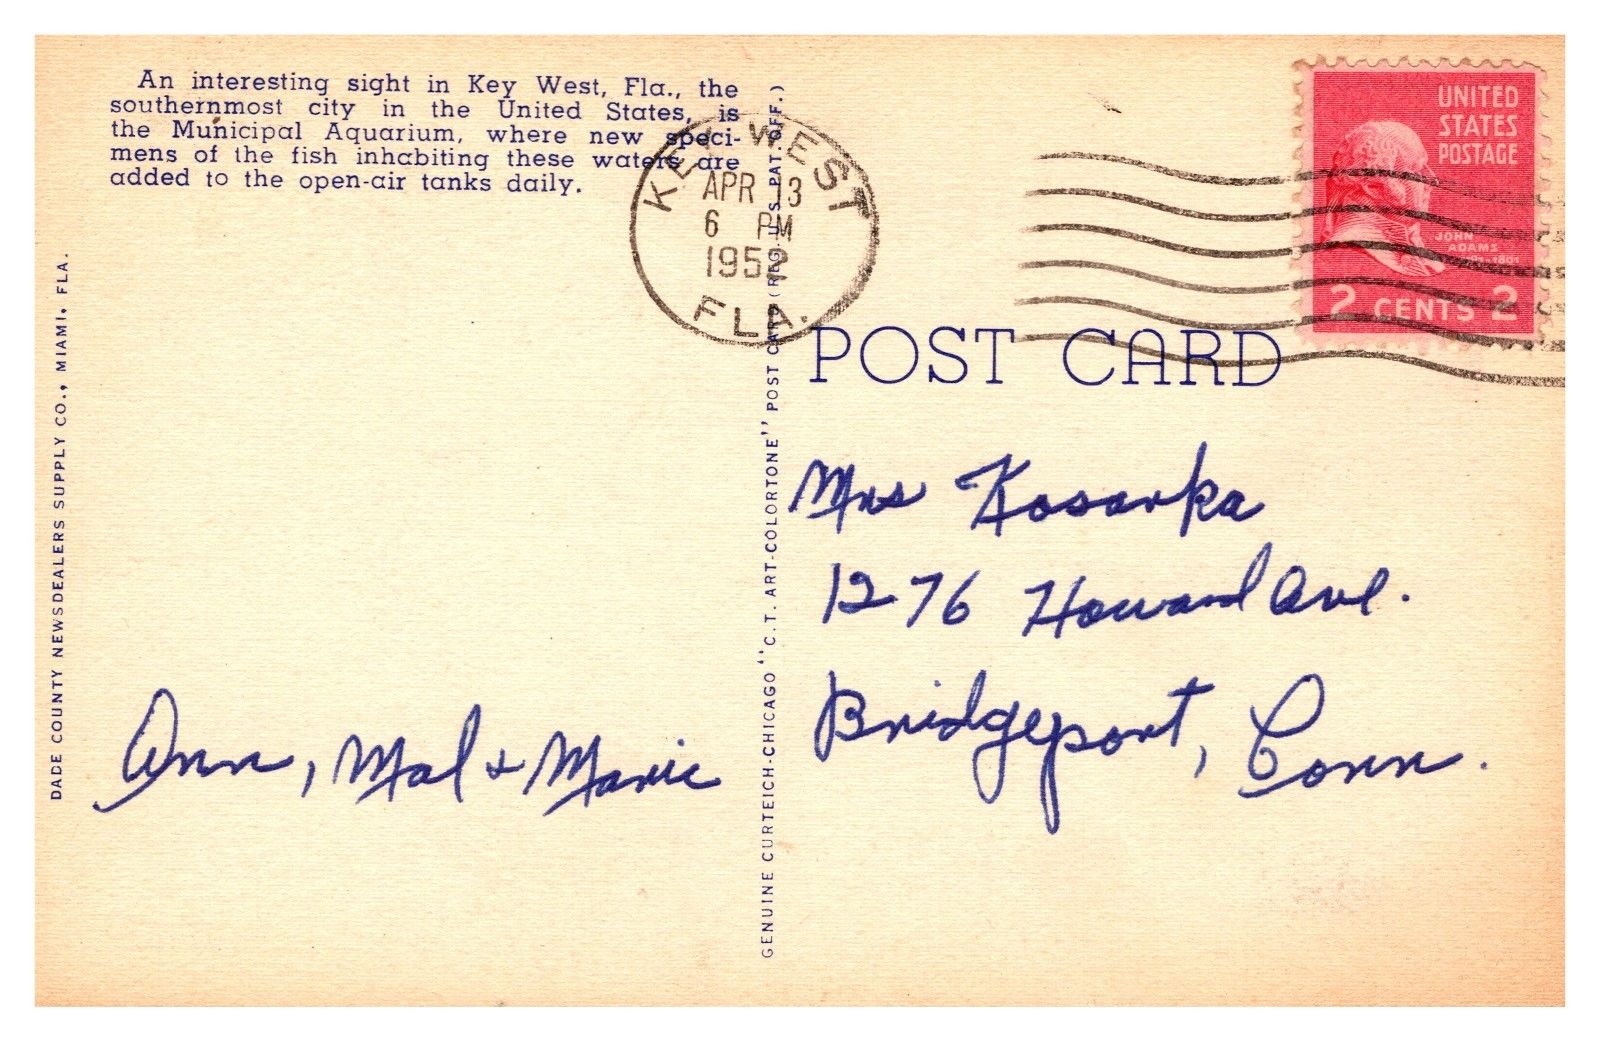 An interesting sight in Key West, Fla., the
southernmost city in the United States, is
the Municipal Aquarium, where new speci-
mens of the fish inhabiting these waters are
added to the open-air tanks daily.
DADE COUNTY NEWSDEALERS SUPPLY CO., MIAMI, FLA.
KEY WEST
APR 13
6 PM
1952
FLA.
GENUINE CURTEICH-CHICAGO "C.T. ART-COLORTONE" POST CARD (REG. U.S. PAT. OFF.)
UNITED
STATES
POSTAGE
JOHN
ADAMS
2 CENTS 2
POST CARD
Mrs Kosarka
1276 Howard Ave.
Bridgeport, Conn.
Ann, Mal + Marie